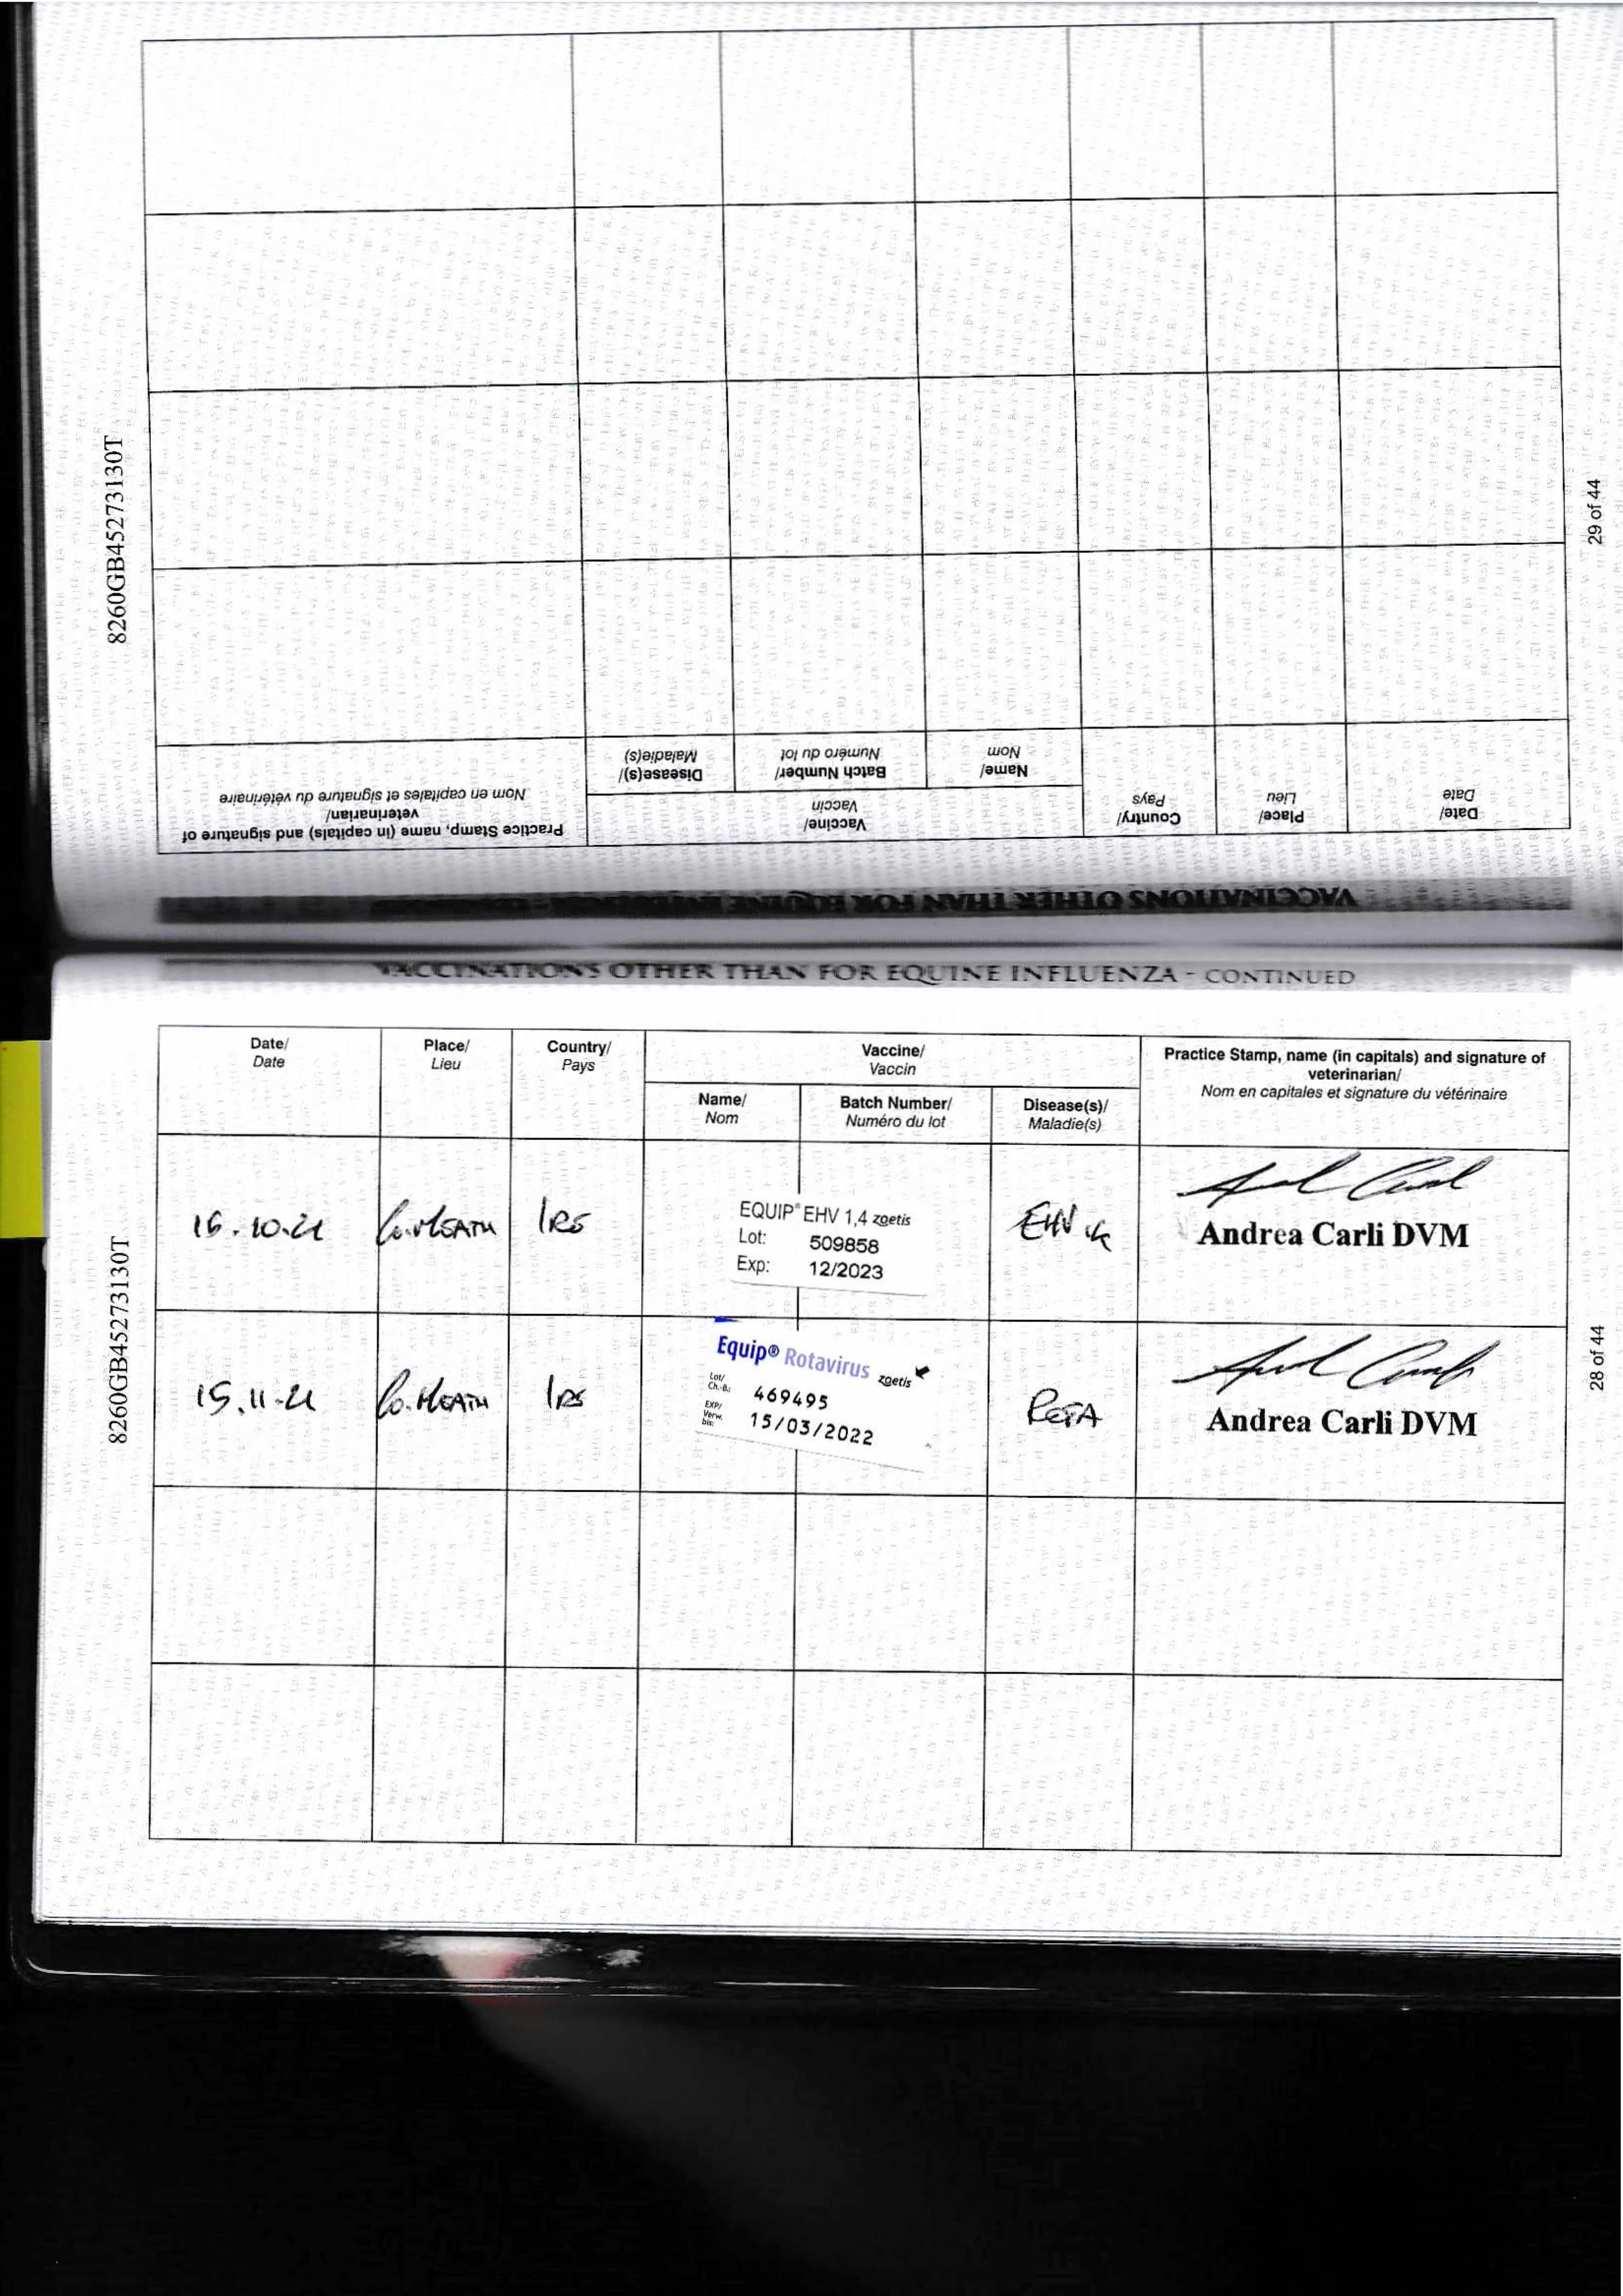 8260GB45273130T
29 of 44
Practice Stamp, name (in capitals) and signature of
veterinarian/
Nom en capitales et signature du vétérinaire
Vaccine/
Vaccin
Disease(s)/
Maladie(s)
Batch Number/
Numéro du lot
Name/
Nom
Country/
Pays
Place/
Lieu
Date/
Date
VACCINATIONS OTHER THAN FOR EQUINE
VACCINATIONS OTHER THAN FOR EQUINE INFLUENZA - CONTINUED
Date/
Date
Place/
Lieu
Country/
Pays
Vaccine/
Vaccin
Name/
Nom
Batch Number/
Numéro du lot
Disease(s)/
Maladie(s)
Practice Stamp, name (in capitals) and signature of
veterinarian/
Nom en capitales et signature du vétérinaire
Co. MEATH
EQUIP® EHV 1,4 zoetis
Lot: 509858
Exp: 12/2023
EHV
Andrea Carli DVM
15.11.21
Co. MEATH
Equip® Rotavirus zoetis
Lot/
Ch.-B.: 469495
EXP/
Verw.
bis: 15/03/2022
Andrea Carli DVM
8260GB45273130T
28 of 44